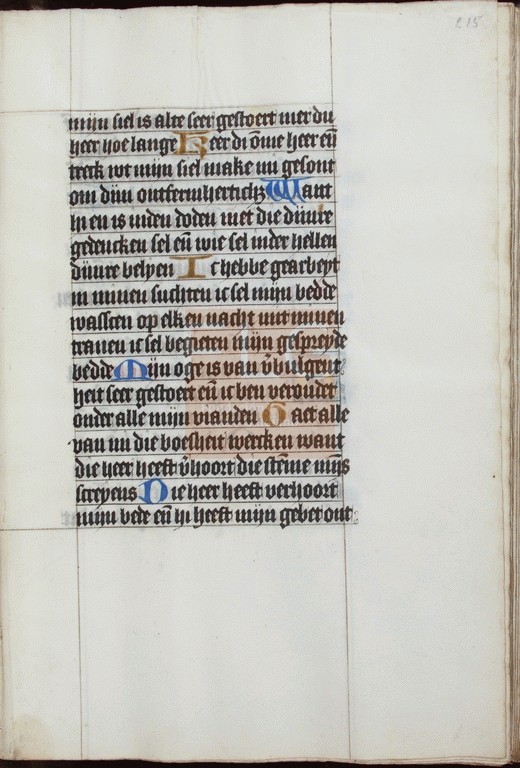 215
mijn siel is alte seer gestoert mer du
heer hoe lange Keer di ōme heer eñ
treck wt mijn siel make mi gesont
om dijn ontfermhertichz Want
hi en is inden doden niet die dijnre
gedencken sel eñ wie sel inder hellen
dijnre belyen Ic hebbe gearbeyt
in minen suchten ic sel mijn bedde
wasscen op elken nacht mit minen
tranen ic sel begieten mijn gespreyde
bedde Mijn oge is van v̄bulgent
heit seer gestoert eñ ic ben veroudet
onder alle mijn vianden Gaet alle
van mi die boesheit wercken want
die heer heeft v̄hoort die stēme mijs
screyens Die heer heeft verhoort
mijn bede eñ hi heeft mijn gebet ont